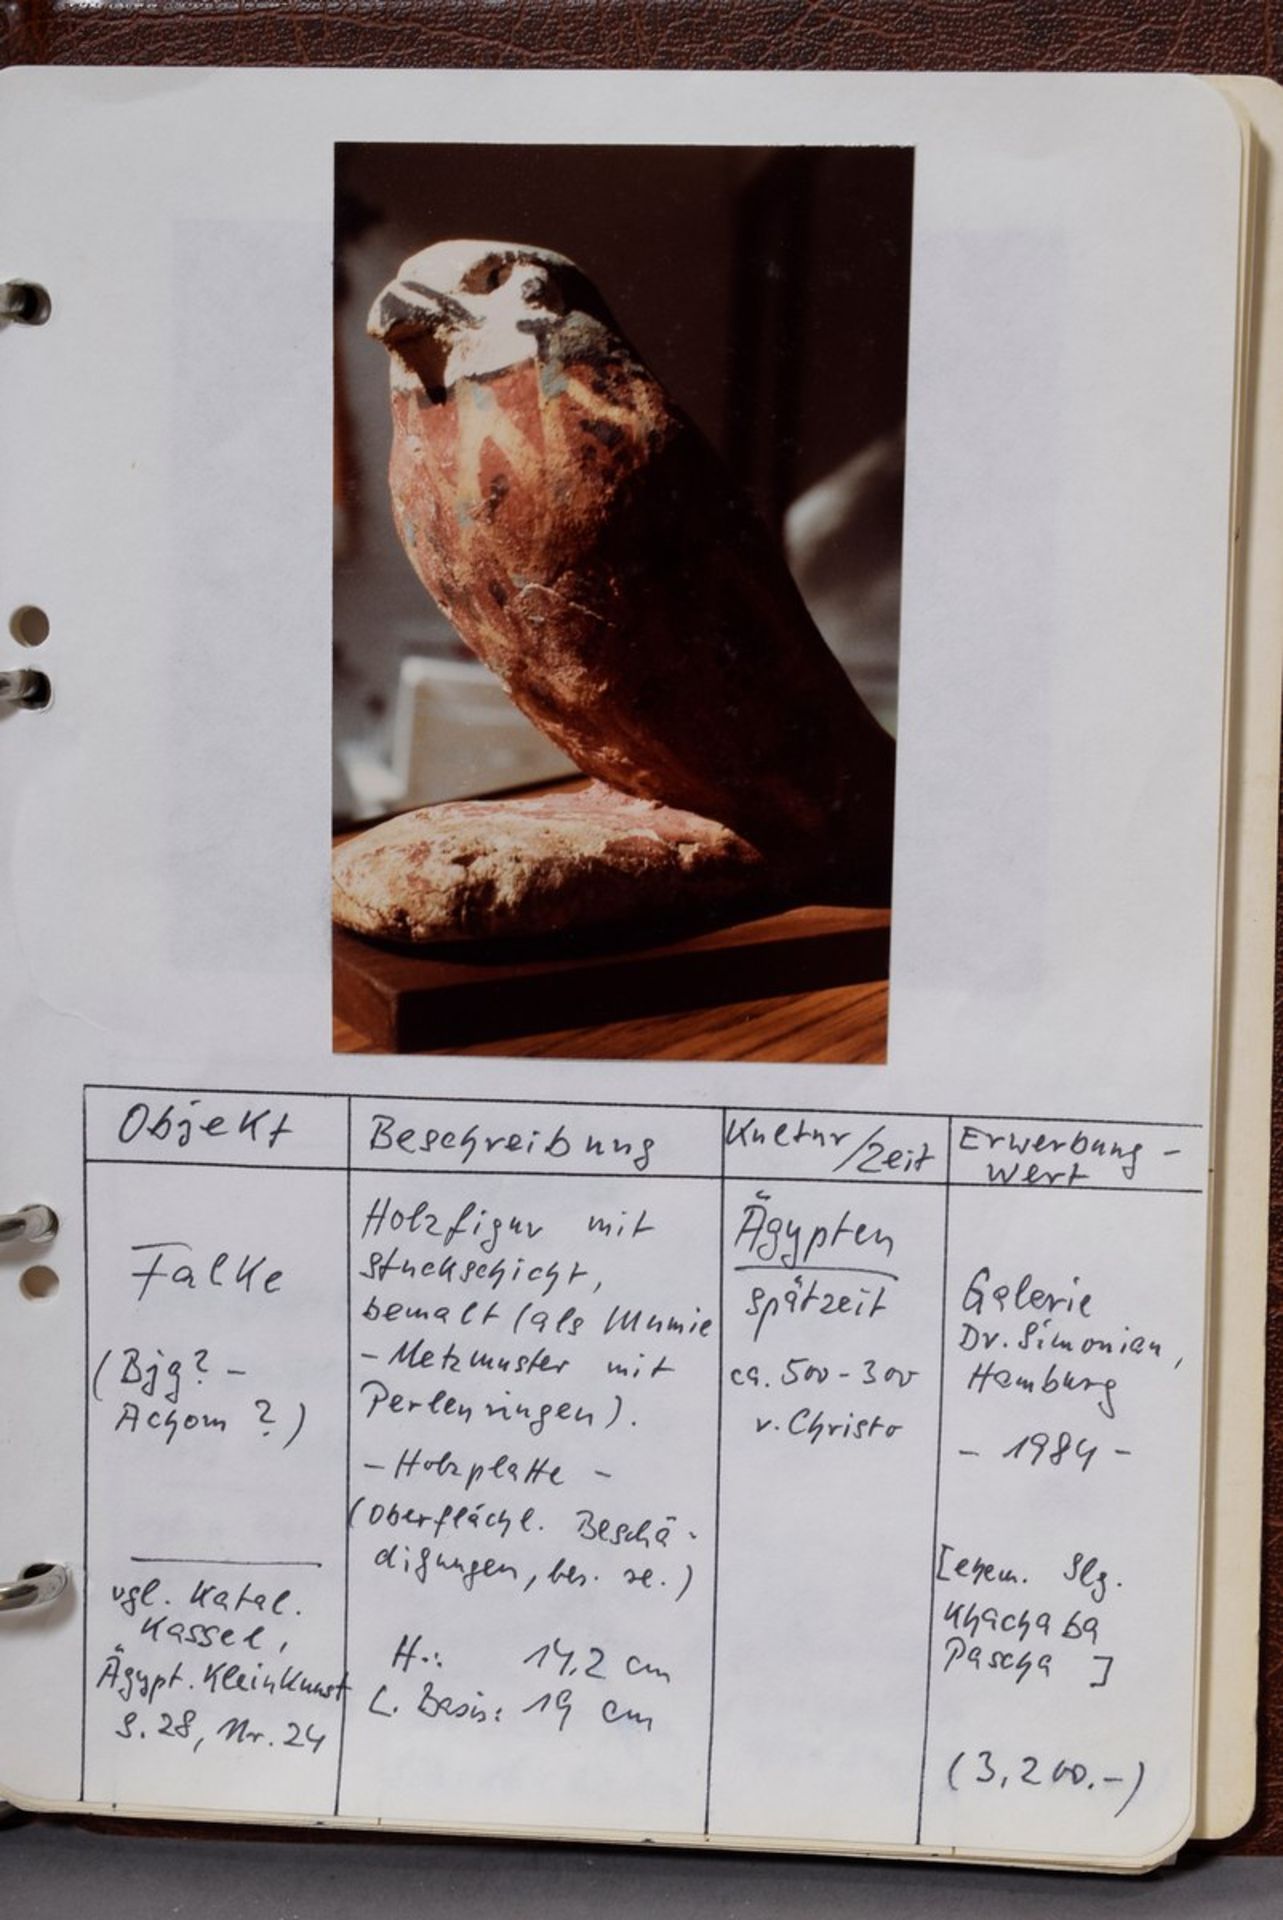 Objekt
Falke
(Bjg? -
Achom ?)
vgl. Katal.
Kassel,
Ägypt. Kleinkunst
S. 28, Nr. 24
Beschreibung
Holzfigur mit
Stuckschicht,
bemalt (als Mumie
- Netzmuster mit
Perlenringen).
- Holzplatte -
(Oberflächl. Beschä-
digungen, bes. re.)
H.: 14,2 cm
L. Basis: 19 cm
Kultur/Zeit
Ägypten
Spätzeit
ca. 500 - 300
v. Christo
Erwerbung -
Wert
Galerie
Dr. Simonian,
Hamburg
- 1984 -
[ehem. Slg.
Khachaba
Pascha ]
(3,200.-)